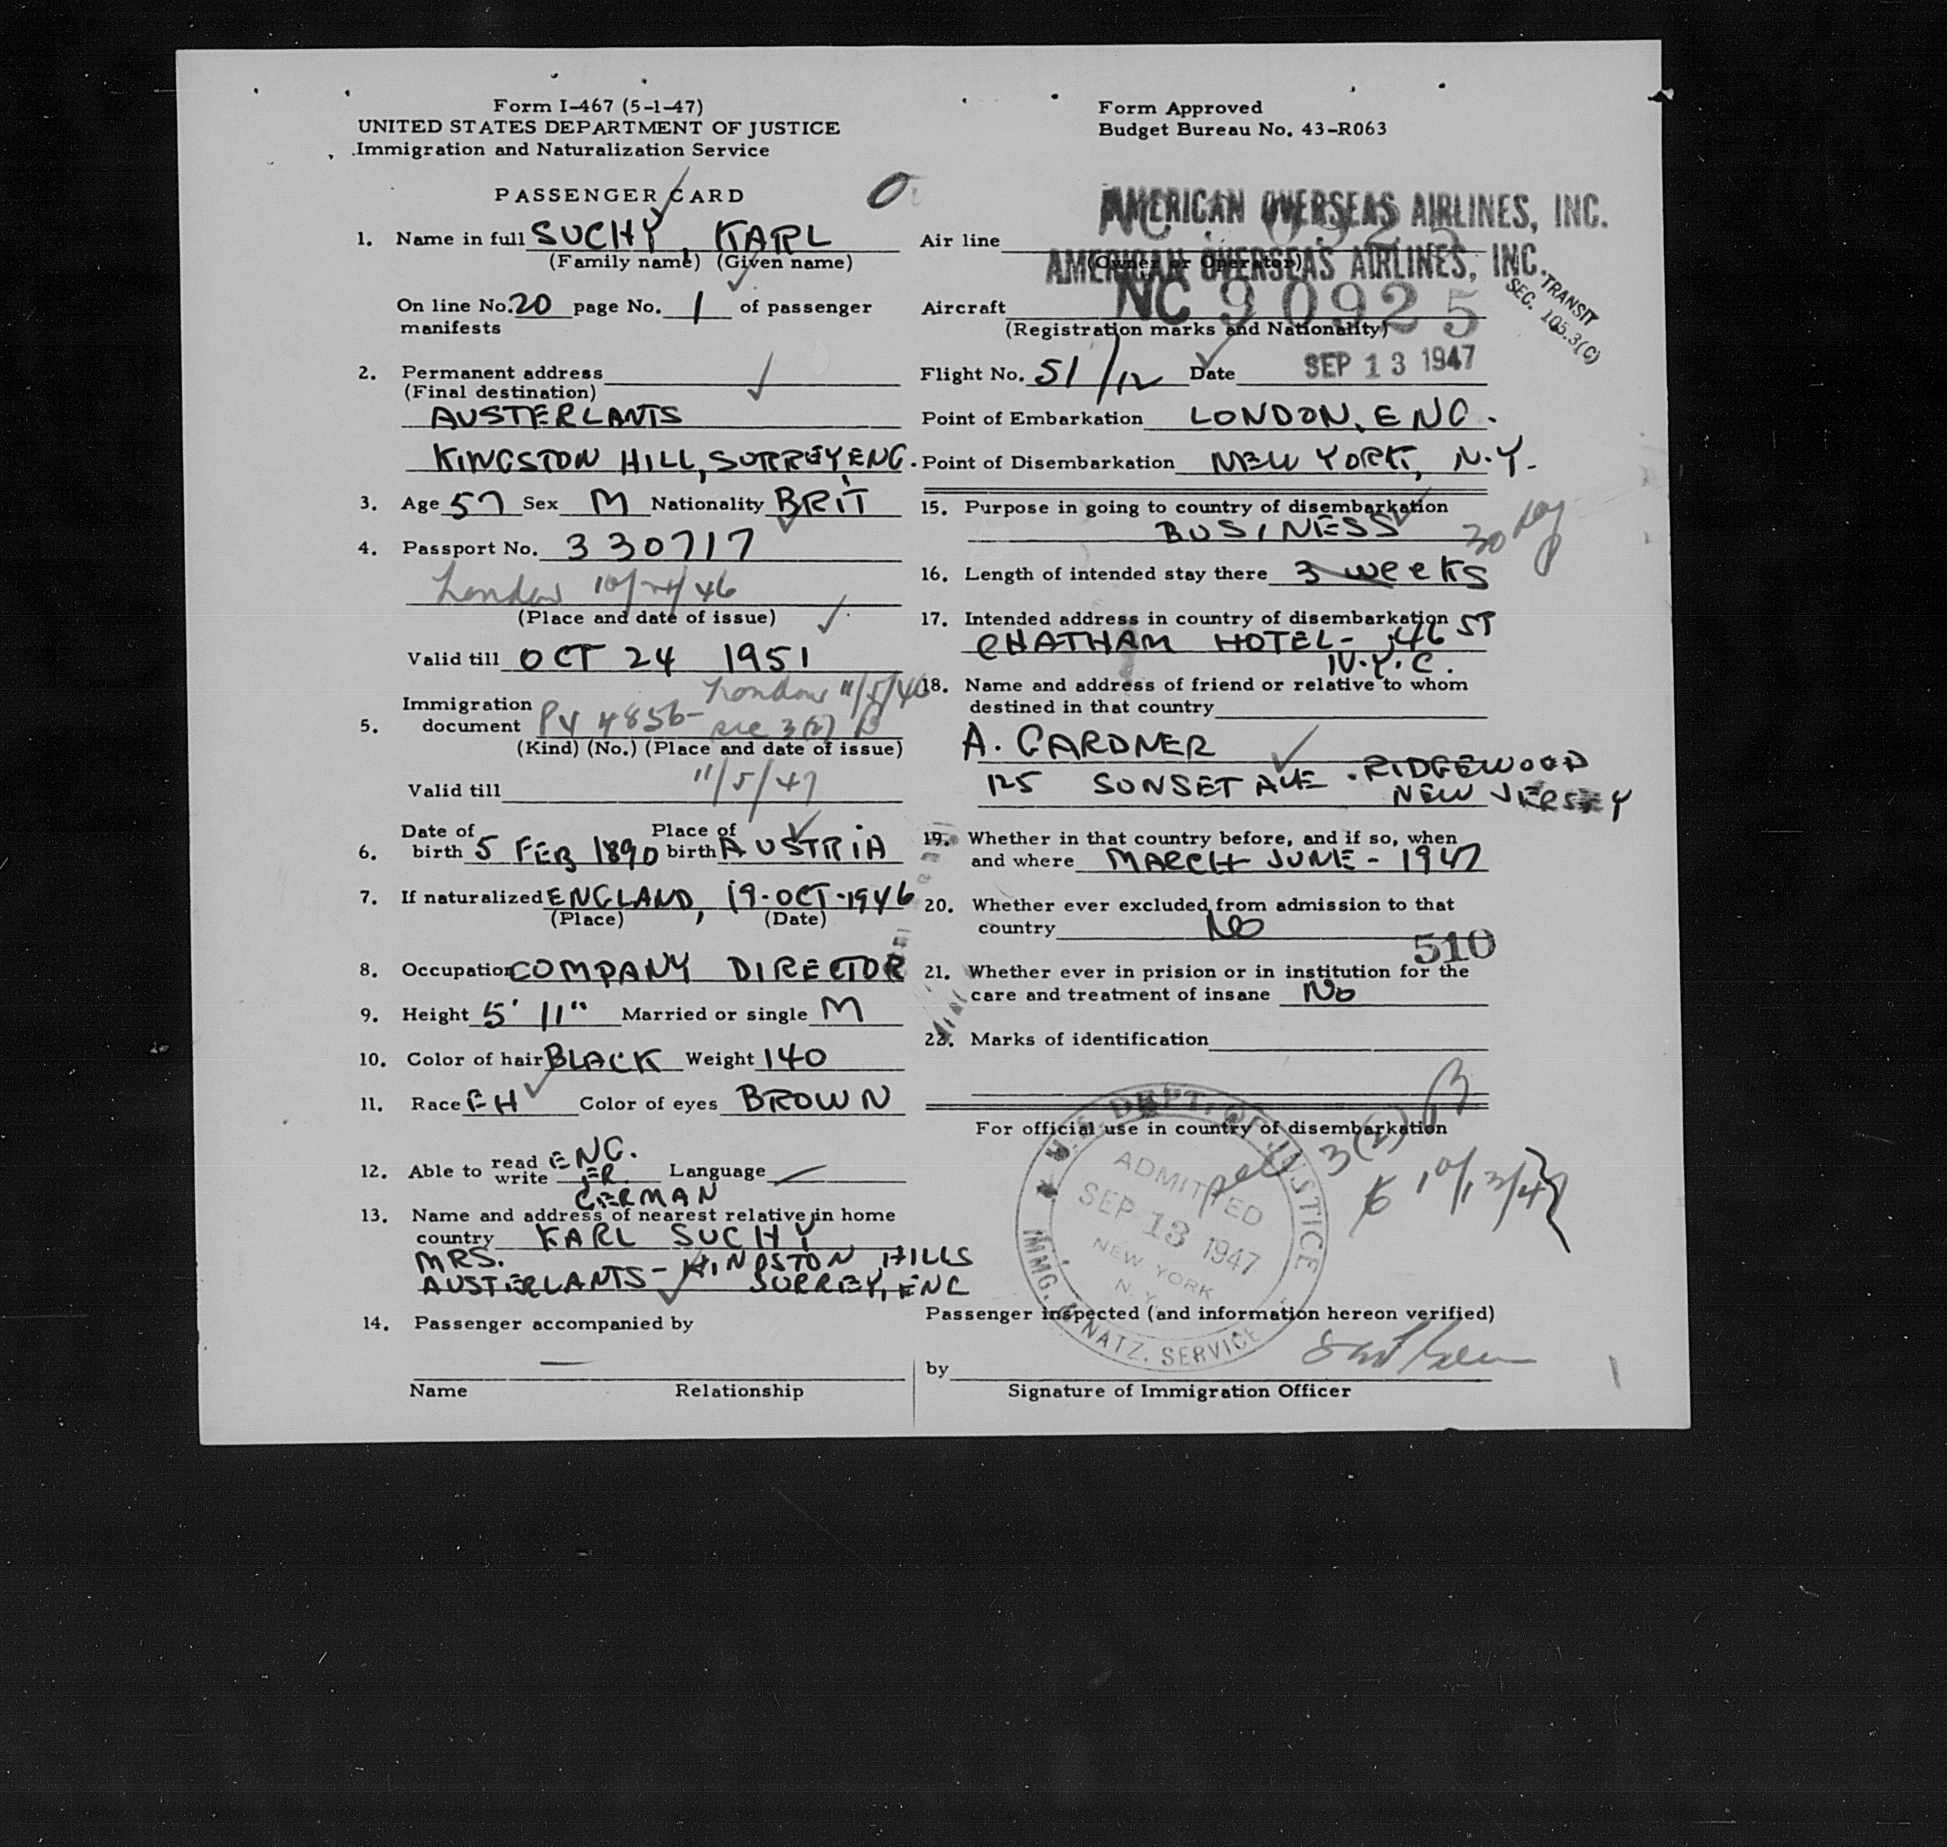 Form I-467 (5-1-47)
UNITED STATES DEPARTMENT OF JUSTICE
Immigration and Naturalization Service
PASSENGER CARD
1. Name in full SUCHY, KARL
(Family name) (Given name)
On line No. 20 page No. 1 of passenger
manifests
2. Permanent address
(Final destination)
AUSTERLANTS
KINGSTON HILL, SURREY, ENG.
3. Age 57 Sex M Nationality BRIT
4. Passport No. 330717
London 10/24/46
(Place and date of issue)
Valid till OCT 24 1951
London 11/5/46
Immigration
5. document PV 4856- sec 3(2) B
(Kind) (No.) (Place and date of issue)
Valid till 11/5/47
Date of Place of
6. birth 5 FEB 1890 birth AUSTRIA
7. If naturalized ENGLAND, 19-OCT-1946
(Place) (Date)
8. Occupation COMPANY DIRECTOR
9. Height 5' 11" Married or single M
10. Color of hair BLACK Weight 140
11. Race EH Color of eyes BROWN
12. Able to read ENG. Language —
write
GERMAN
13. Name and address of nearest relative in home
country KARL SUCHY
MRS.
AUSTERLANTS - KINGSTON HILLS
SURREY, ENG
14. Passenger accompanied by
—
Name Relationship
Form Approved
Budget Bureau No. 43-R063
AMERICAN OVERSEAS AIRLINES, INC.
Air line
(Owner or Operator)
AMERICAN OVERSEAS AIRLINES, INC.
TRANSIT
SEC. 105.3(C)
Aircraft NC 90925
(Registration marks and Nationality)
Flight No. 51/12 Date SEP 13 1947
Point of Embarkation LONDON, ENG.
Point of Disembarkation NEW YORK, N.Y.
15. Purpose in going to country of disembarkation
BUSINESS
30 day
16. Length of intended stay there 3 weeks
17. Intended address in country of disembarkation
CHATHAM HOTEL - 46 ST
N.Y.C.
18. Name and address of friend or relative to whom
destined in that country
A. GARDNER
125 SUNSET AVE. RIDGEWOOD
NEW JERSEY
19. Whether in that country before, and if so, when
and where MARCH - JUNE - 1947
20. Whether ever excluded from admission to that
country NO
510
21. Whether ever in prision or in institution for the
care and treatment of insane NO
22. Marks of identification
For official use in country of disembarkation
U.S. DEPT. OF JUSTICE
ADMITTED
SEP 13 1947
NEW YORK
N.Y.
IMMG. & NATZ. SERVICE
3(2) B
10/13/47
Passenger inspected (and information hereon verified)
by
Signature of Immigration Officer